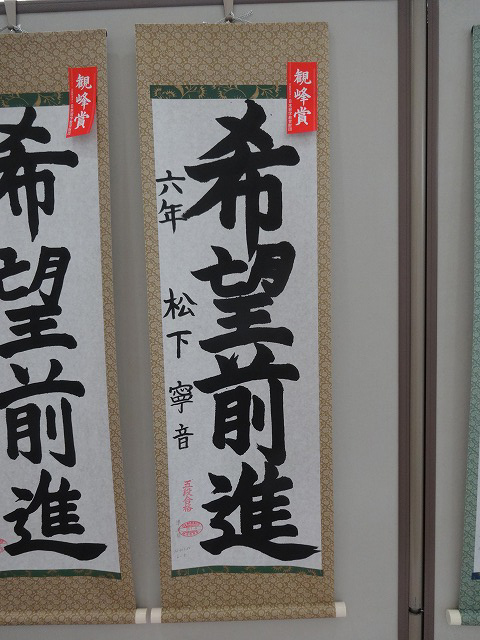 観峰賞
希望前進
六年 松下寧音
五段合格
観峰賞
希望前進